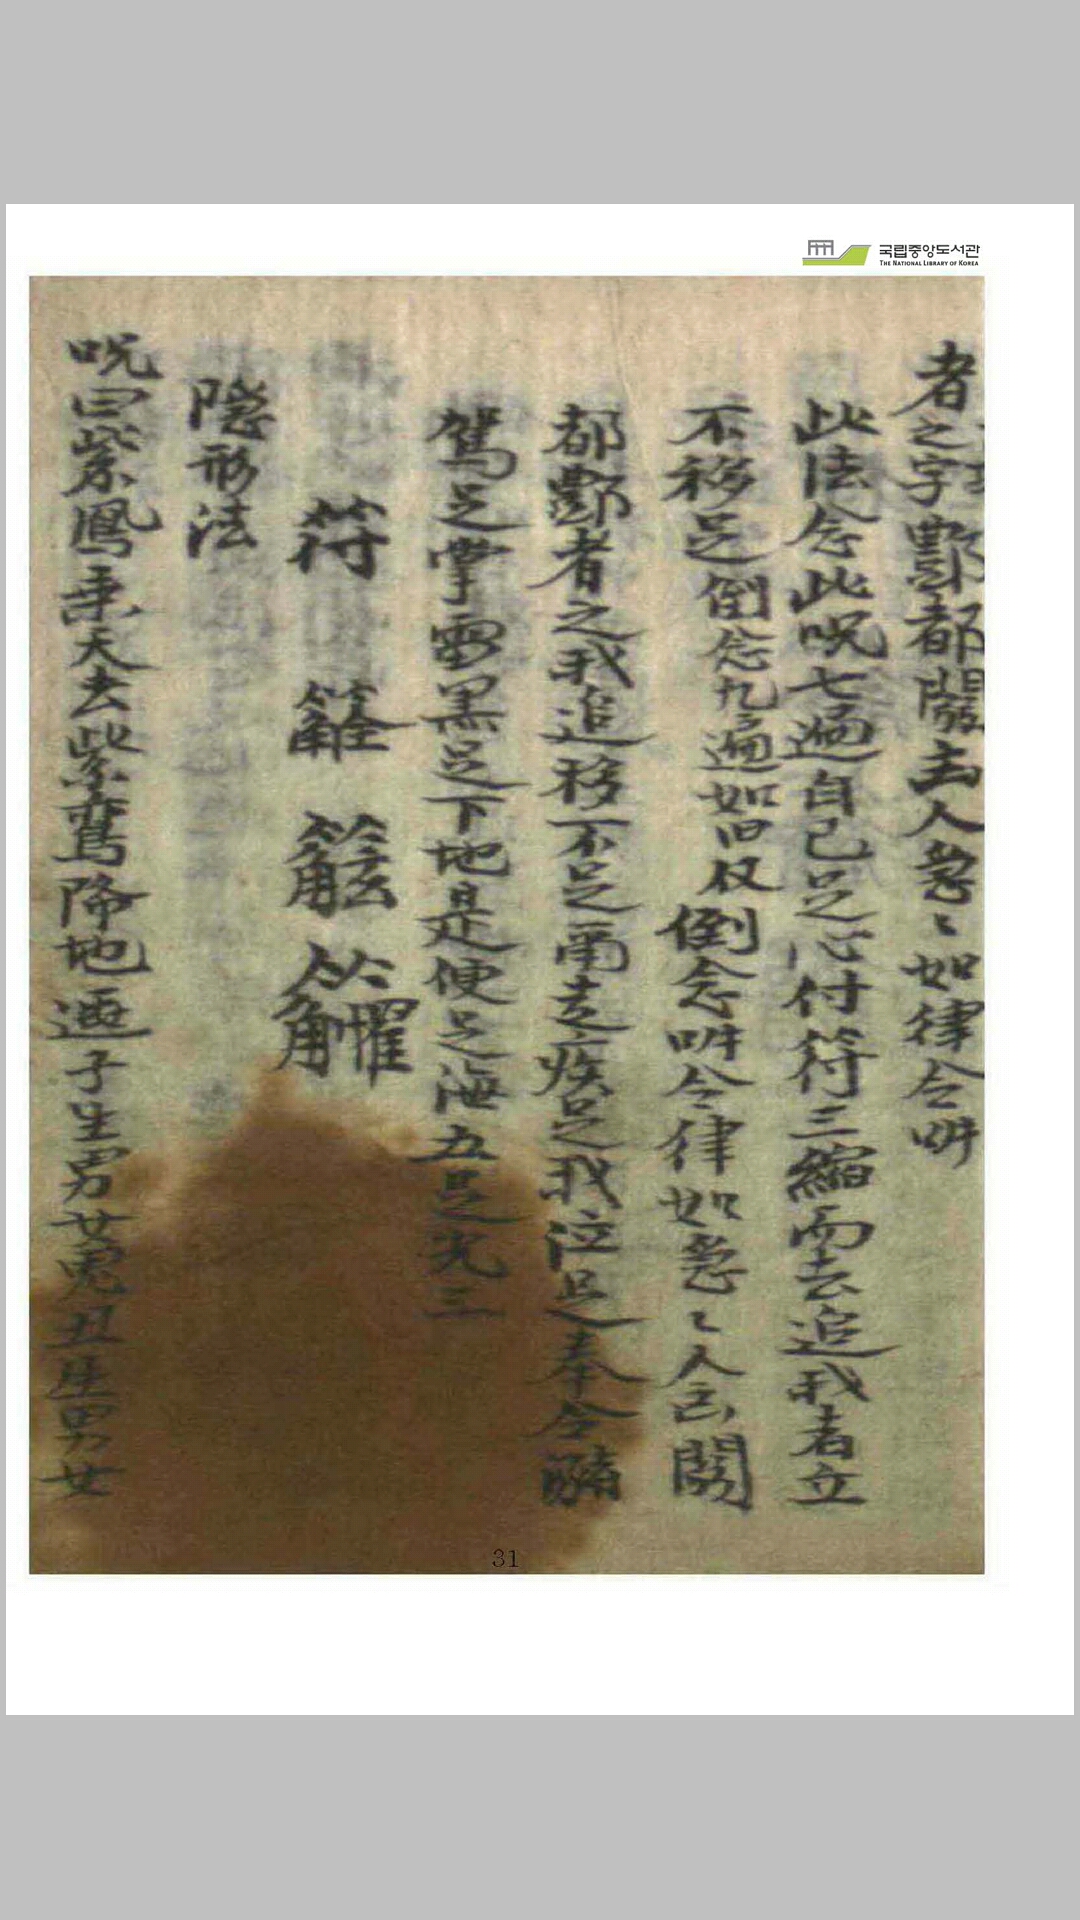 국립중앙도서관
THE NATIONAL LIBRARY OF KOREA
者之字酆都關主人急〻如律令
此法念此呪七遍自己足心付符三縮而去追我者立
不移足倒念九遍如旧仅倒念令律如急〻人去關
都酆者之我追移不足走疾足我泣足奉令
駕足掌雷黑足下地是便足海五足光三
符
陰形法
呪曰紫鳳乘天去紫鸞降地 子生男女 丑生男女
31